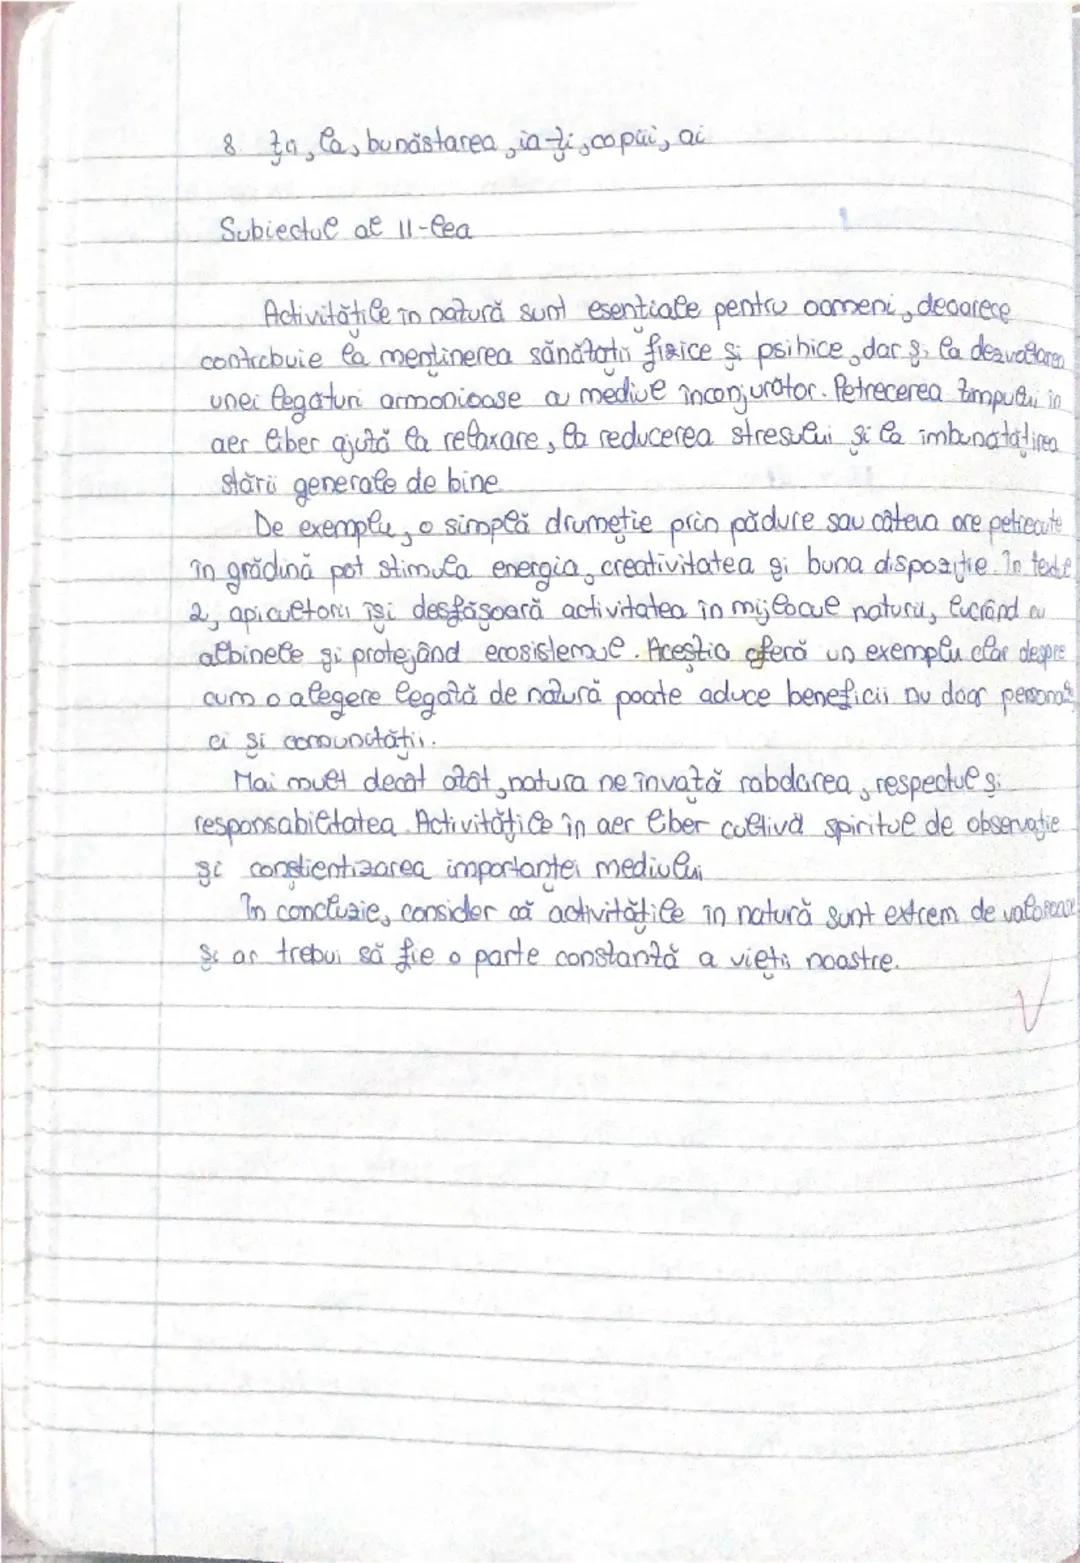 8. ța, la, bunăstarea, ia-ți, copiii, ai
Subiectul al II-lea
Activitățile în natură sunt esențiale pentru oameni, deoarece
contribuie la menținerea sănătății fizice și psihice, dar și la dezvoltarea
unei legături armonioase cu mediul înconjurător. Petrecerea timpului în
aer liber ajută la relaxare, la reducerea stresului și la imbunatățirea
stării generale de bine.
De exemplu, o simplă drumeție prin pădure sau câteva ore petrecute
în grădină pot stimula energia, creativitatea și buna dispoziție. În textul
2, apicultorii își desfășoară activitatea în mijlocul naturii, lucrând cu
albinele și protejând ecosistemul. Aceștia oferă un exemplu clar despre
cum o alegere legată de natură poate aduce beneficii nu doar personale
ci și comunității.
Mai mult decât atât, natura ne învață rabdarea, respectul și
responsabilitatea. Activitățile în aer liber cultivă spiritul de observație
și conștientizarea importanței mediului.
În concluzie, consider că activitățile în natură sunt extrem de valoroase
și ar trebui să fie o parte constantă a vieții noastre.